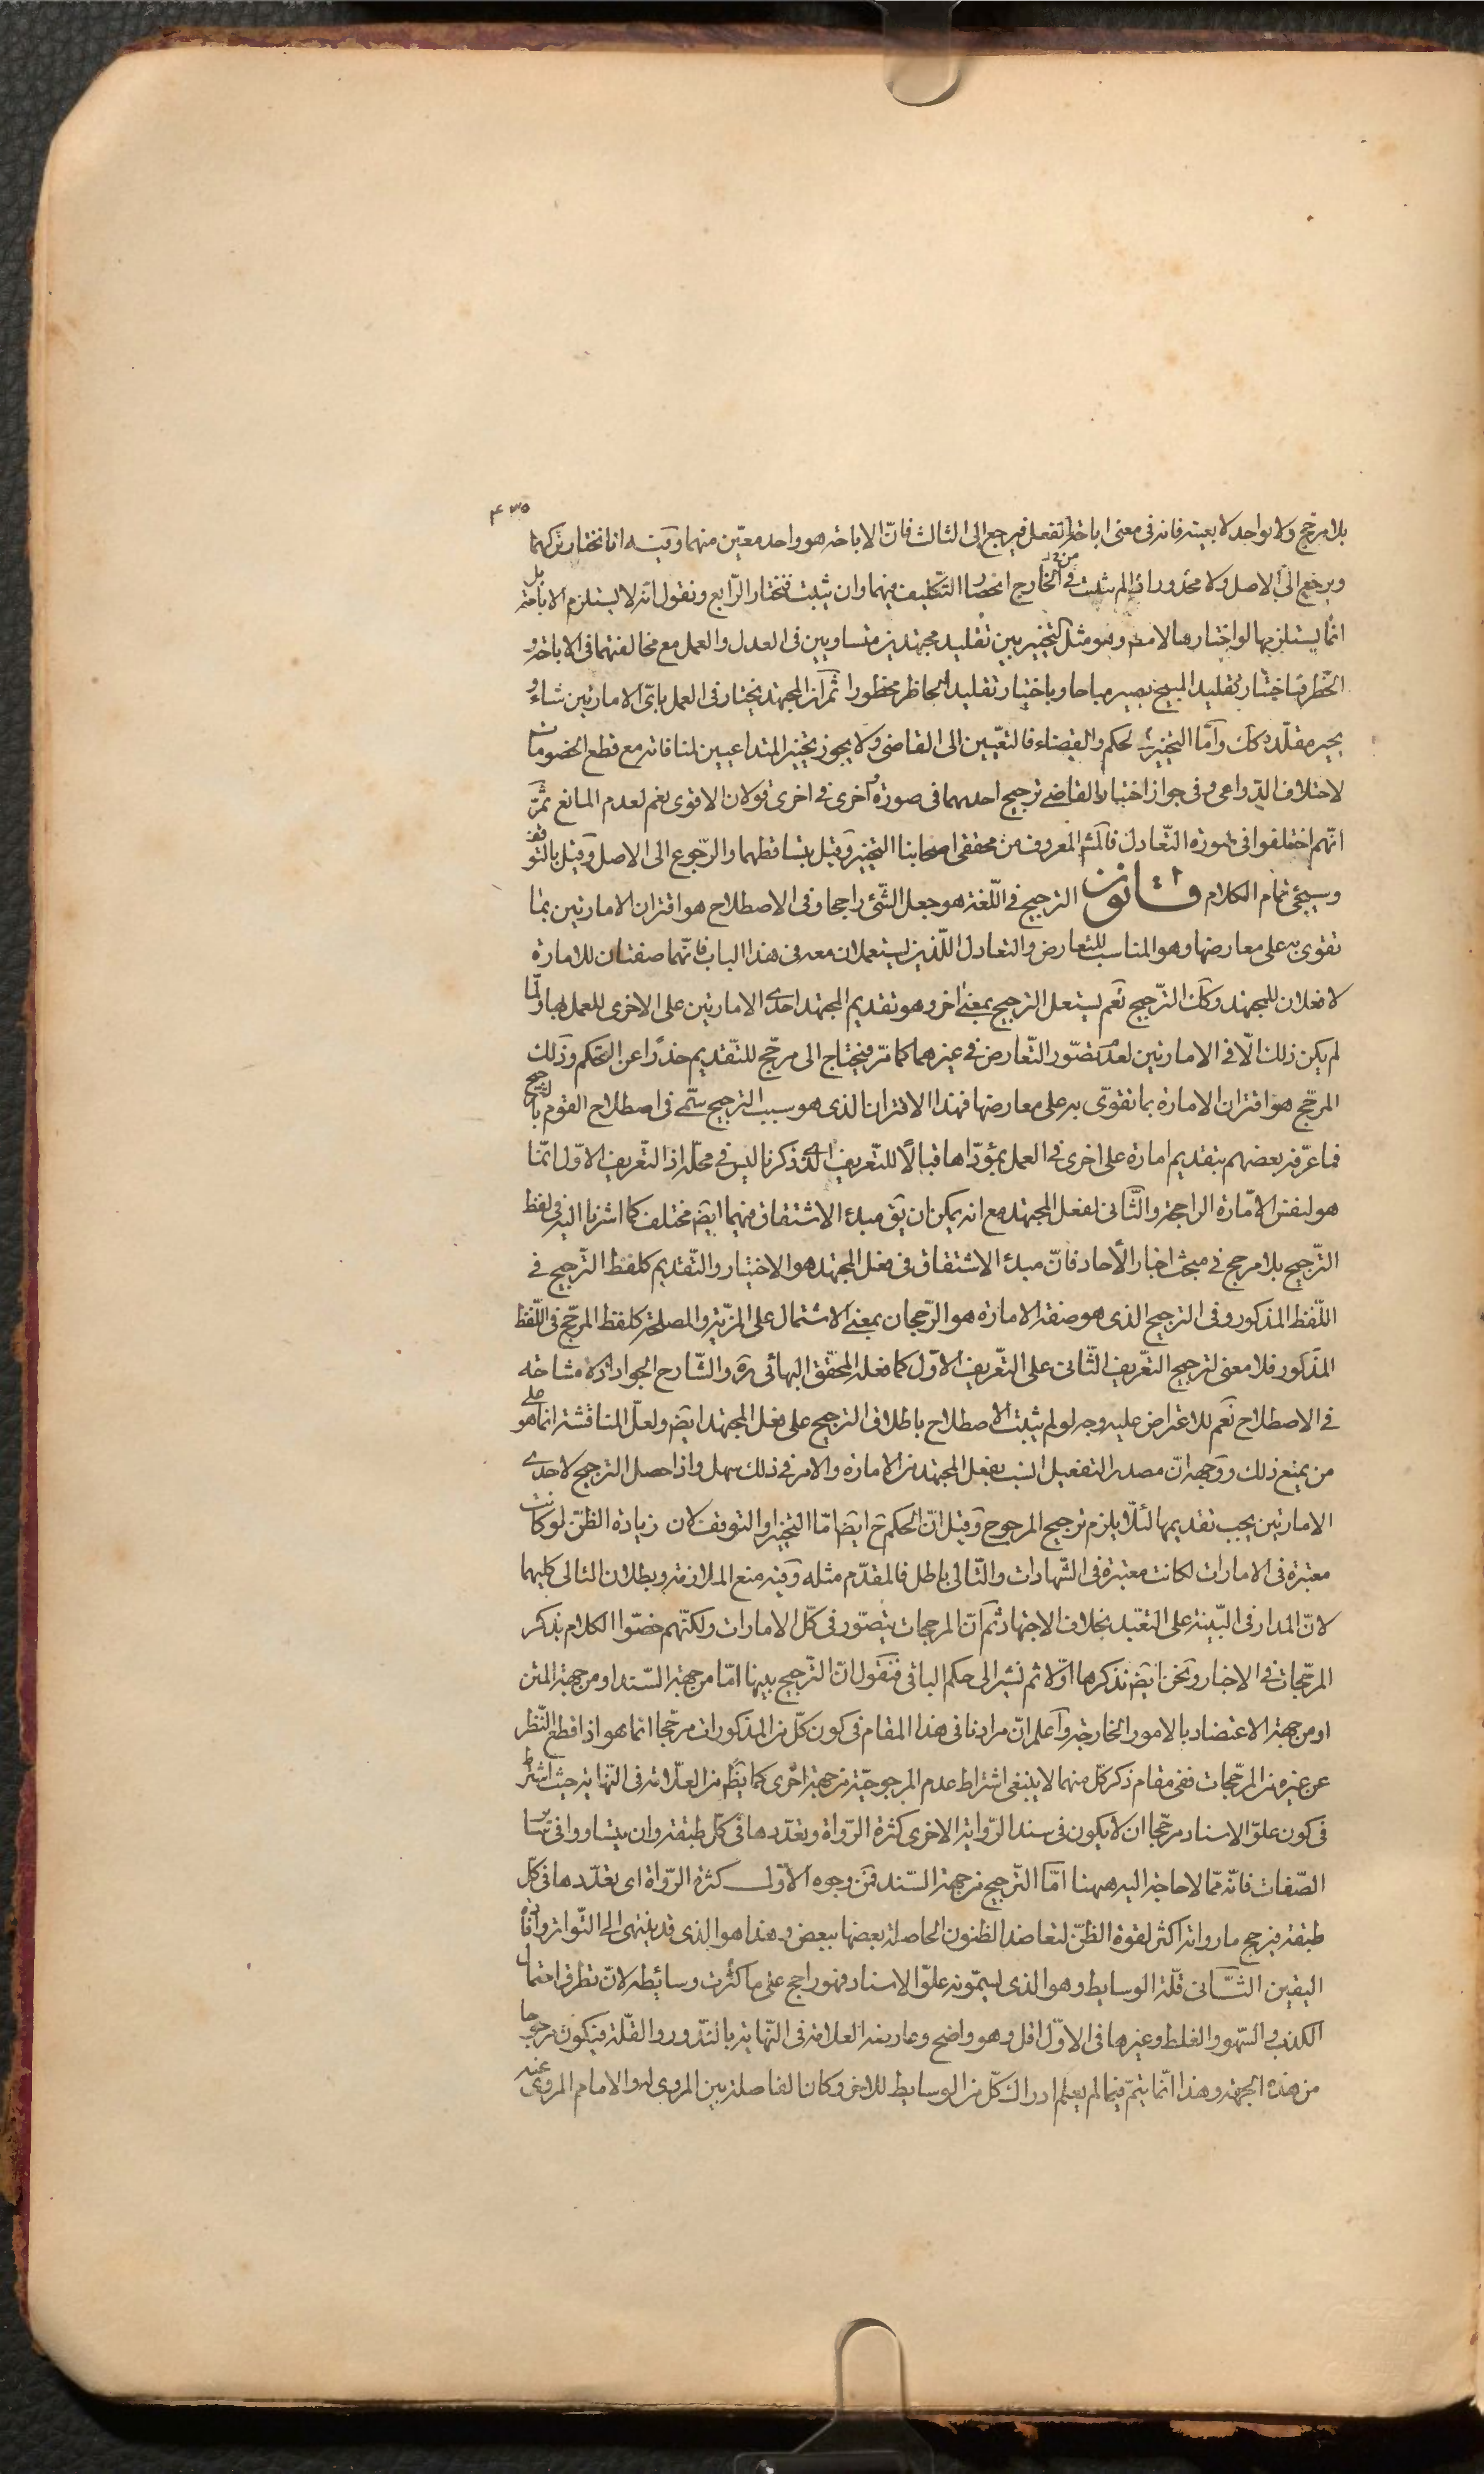 ۴۳۵
بلا مرجح ولا بواحد لا بعينه فانه فى معنى اباحة الفعل فيرجع الى الثالث فانّ الاباحة هو واحد معيّن منهما وفيه انا نختار تركهما
ويرجع الى الاصل ولا محذور ان لم يثبت فى الخارج انحصار التكليف فيهما وان يثبت فنختار الرّابع ونقول انه لا يستلزم الاباحة بل
انّما يستلزمها لو اختارها لا مطلقا وهو مثل التخيير بين تقليد مجتهدين متساويين فى العدل والعمل مع مخالفتهما فى الاباحة و
الحظر فباختيار تقليد المبيح يصير مباحا وباختيار تقليد الحاظر محظورا ثم ان المجتهد يختار فى العمل باىّ الامارتين شاء و
يخيّر مقلّده كك وامّا التخيير فى الحكم والقضاء فالتعيين الى القاضى ولا يجوز تخيير المتداعيين لمنافاته مع قطع الخصومات
لاختلاف الدّواعى وفى جواز اختيار القاضى ترجيح احديهما فى صورة واخرى فى اخرى قولان الاقوى نعم لعدم المانع ثمّ
انّهم اختلفوا فى صورة التّعادل فالمشهور المعروف من محققى اصحابنا التخيير وقيل بتساقطهما والرّجوع الى الاصل وقيل بالتوقف
وسيجئ تمام الكلام قانون الترجيح فى اللّغة هو جعل الشّئ راجحا وفى الاصطلاح هو اقتران الامارتين بما
تقوى به على معارضها وهو المناسب للتعارض والتعادل اللّذين يستعملان معه فى هذا الباب فانّهما صفتان للامارة
لا فعلان للمجتهد وكك الترّجيح نعم يستعمل الترجيح بمعنى اخر وهو تقديم المجتهد احدى الامارتين على الاخرى للعمل بها ولمّا
لم يكن ذلك الّا فى الامارتين لعدم تصّور التّعارض فى غيرهما كما مرّ فيحتاج الى مرجّح للتّقديم حذرًا عن التحكم وذلك
المرجّح هو اقتران الامارة بما تقوّى به على معارضها فهذا الاقتران الذى هو سبب الترجيح سمّى فى اصطلاح القوم بالترجيح
فما عرّفه بعضهم بتقديم امارة على اخرى فى العمل بمؤدّاها قبالًا للتّعريف الذى ذكرنا ليس فى محلّه اذ التّعريف الاوّل انّما
هو لنفس الامّارة الراجحة والثّانى لفعل المجتهد مع انه يمكن ان يق مبدء الاشتقاق فيهما ايضم مختلف كما اشرنا اليه فى لفظ
الترّجيح بلا مرجح فى مبحث اخبار الأحاد فانّ مبدء الاشتقاق فى فعل المجتهد هو الاختيار والتّقديم كلفظ الترّجيح فى
اللّفظ المذكور وفى الترجيح الذى هو صفة الامارة هو الرّجحان بمعنى الاشتمال على المزّية والمصلحة كلفظ المرجّح فى اللّفظ
المذكور فلا معنى لترجيح التعّريف الثّانى على التعّريف الاوّل كما فعله المحقّق البهائى ره والشّارح الجواد اذ لا مشاحّة
فى الاصطلاح نعم للاعتراض عليه وجه لو لم يثبت الاصطلاح باطلاق الترجيح على فعل المجتهد ايضم ولعلّ المناقشة انما هو على
من يمنع ذلك ووجهه انّ مصدر التفعيل انسب بفعل المجتهد من الامارة والامر فى ذلك سهل واذا حصل الترجيح لاحدى
الامارتين يجب تقديمها لئلّا يلزم ترجيح المرجوح وقيل انّ الحكم ح ايضا امّا التخيير او التوقف لان زيادة الظنّ لو كانت
معتبرة فى الامارات لكانت معتبرة فى الشّهادات والتّالى باطل فالمقدّم مثله وفيه منع الملازمة وبطلان التالى كليهما
لانّ المدار فى البّينة على التعبّد بخلاف الاجتهاد ثم انّ المرجحات يتصوّر فى كلّ الامارات ولكنّهم خصّوا الكلام بذكر
المرجّحات فى الاخبار ونحن ايضم نذكرها اوّلا ثم نشير الى حكم الباقى فنقول انّ الترّجيح بينها امّا من جهة السّند او من جهة المتن
او من جهة الاعتضاد بالامور الخارجة واعلم انّ مرادنا فى هذا المقام فى كون كلّ من المذكورات مرجّحا انما هو اذا قطع النّظر
عن غيره من المرجّحات ففى مقام ذكر كلّ منهما لا ينبغى اشتراط عدم المرجوحيّة من جهة اخرى كما يظم من العلّامة فى النّهاية حيث اشترط
فى كون علوّ الاسناد مرجّحا ان لا يكون فى سند الرّواية الاخرى كثرة الرّواة وتعدّدها فى كلّ طبقة وان يتساووا فى ساير
الصّفات فانّه ممّا لا حاجة اليه ههنا امّا الترّجيح من جهة السّند فمن وجوه الاوّل كثرة الرّواة اى تعدّدها فى كلّ
طبقة فيرجح ما رواته اكثر لقوة الظنّ لتعاضد الظنون الحاصلة بعضها ببعض وهذا هو الذى قد ينتهى الى التّواتر وافادة
اليقين الثّانى قلّة الوسايط وهو الذى يسمّونه علوّ الاسناد فهو راجح على ما كثرت وسائطه لانّ تطرق احتمال
الكذب والسّهو والغلط وغيرها فى الاوّل اقل وهو واضح وعارضه العلامة فى النّهاية بالنّدور والقلّة فيكون مرجوحا
من هذه الجهة وهذا انّما يتمّ فيما لم يعلم ادراك كلّ من الوسايط للاخر وكان الفاصلة بين المروى له والامام المروى عنه